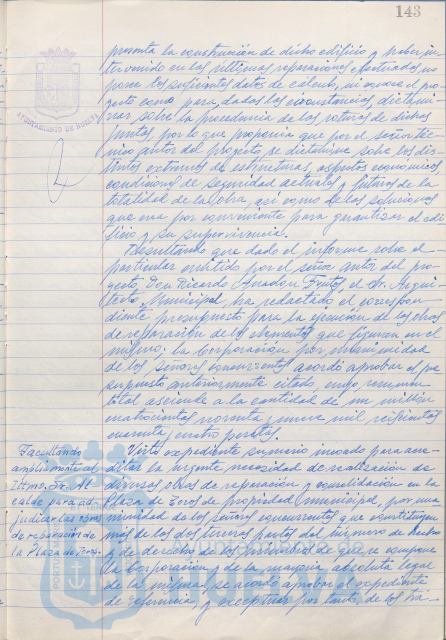 143
AYUNTAMIENTO DE HUELVA
presenta la construcción de dicho edificio y haber in-
tervenido en las últimas reparaciones efectuadas no
posee los suficientes datos de cálculo, ni conoce el pro-
yecto como para, dadas las circunstancias, dictami-
nar sobre la procedencia de las roturas de dichas
juntas por lo que proponía que por el señor téc-
nico autor del proyecto, se dictamine sobre los dis-
tintos extremos de estructuras, aspectos económicos
condiciones de seguridad actuales y futuras de la
totalidad de la obra, así como de las soluciones
que crea por conveniente para garantizar el edi-
ficio y su supervivencia.
Resultando que dado el informe sobre el
particular emitido por el señor autor del pro-
yecto, Don Ricardo Anadón Frutos, el Sr. Arqui-
tecto Municipal ha redactado el correspon-
diente presupuesto para la ejecución de las obras
de reparación de los elementos que figuran en el
mismo; la Corporación por unanimidad
de los señores concurrentes acordó aprobar el pre-
supuesto anteriormente citado, cuyo resumen
total asciende a la cantidad de un millón
cuatrocientas noventa y nueve mil seiscientas
cuarenta y cuatro pesetas.
Facultando
ampliamente al
Iltmo. Sr. Al-
calde para ad-
judicar las obras
de reparación de
la Plaza de Toros.
Visto expediente sumario incoado para acre-
ditar la urgente necesidad de realización de
diversas obras de reparación y consolidación en la
Plaza de Toros de propiedad municipal, por una-
nimidad de los señores concurrentes que constituyen
más de las dos terceras partes del número de hecho
y de derecho de los miembros de que se compone
la Corporación y de la mayoría absoluta legal
de la misma, se acordó aprobar el expediente
de referencia, y exceptuar por tanto, de los trá-